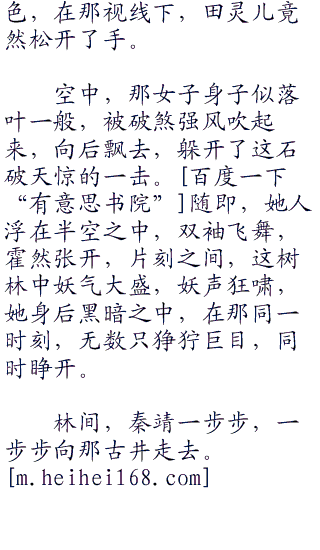 色，在那视线下，田灵儿竟
然松开了手。
空中，那女子身子似落
叶一般，被破煞强风吹起
来，向后飘去，躲开了这石
破天惊的一击。[百度一下
“有意思书院”]随即，她人
浮在半空之中，双袖飞舞，
霍然张开，片刻之间，这树
林中妖气大盛，妖声狂啸，
她身后黑暗之中，在那同一
时刻，无数只狰狞巨目，同
时睁开。
林间，秦靖一步步，一
步步向那古井走去。
[m.heihei168.com]